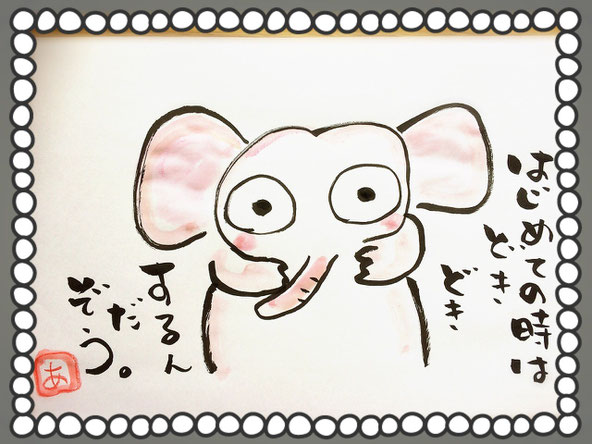 はじめての時は
どき、
どき、
するん
だ
ぞう。
あ